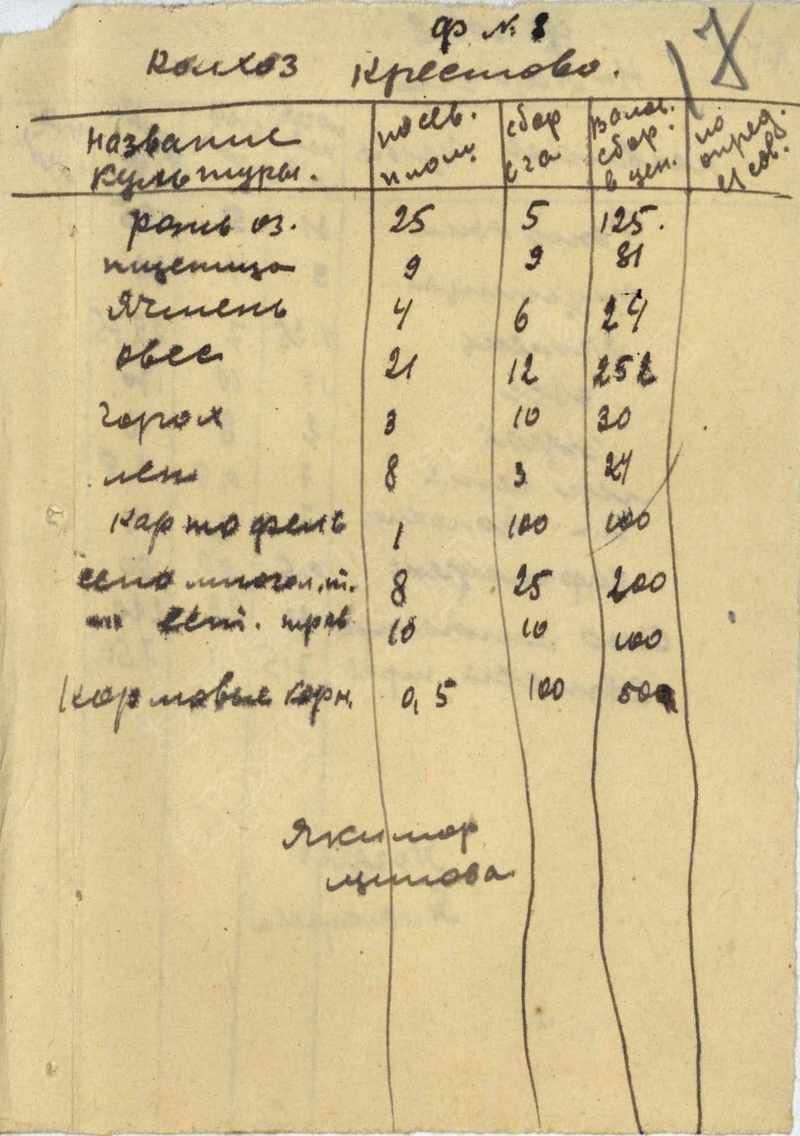 ф № 8
колхоз Крестово.
Название культуры. посев. площ. сбор с га Валов. сбор. в цен. по опред. с/сов.
рожь оз. 25 5 125.
пшеница 9 9 81
Ячмень 4 6 24
овес 21 12 252
горох 3 10 30
лен 8 3 24
картофель 1 100 100
сено многол. т. 8 25 200
–"– ест. трав 10 10 100
Кормовые корн. 0,5 100 500
Якимор